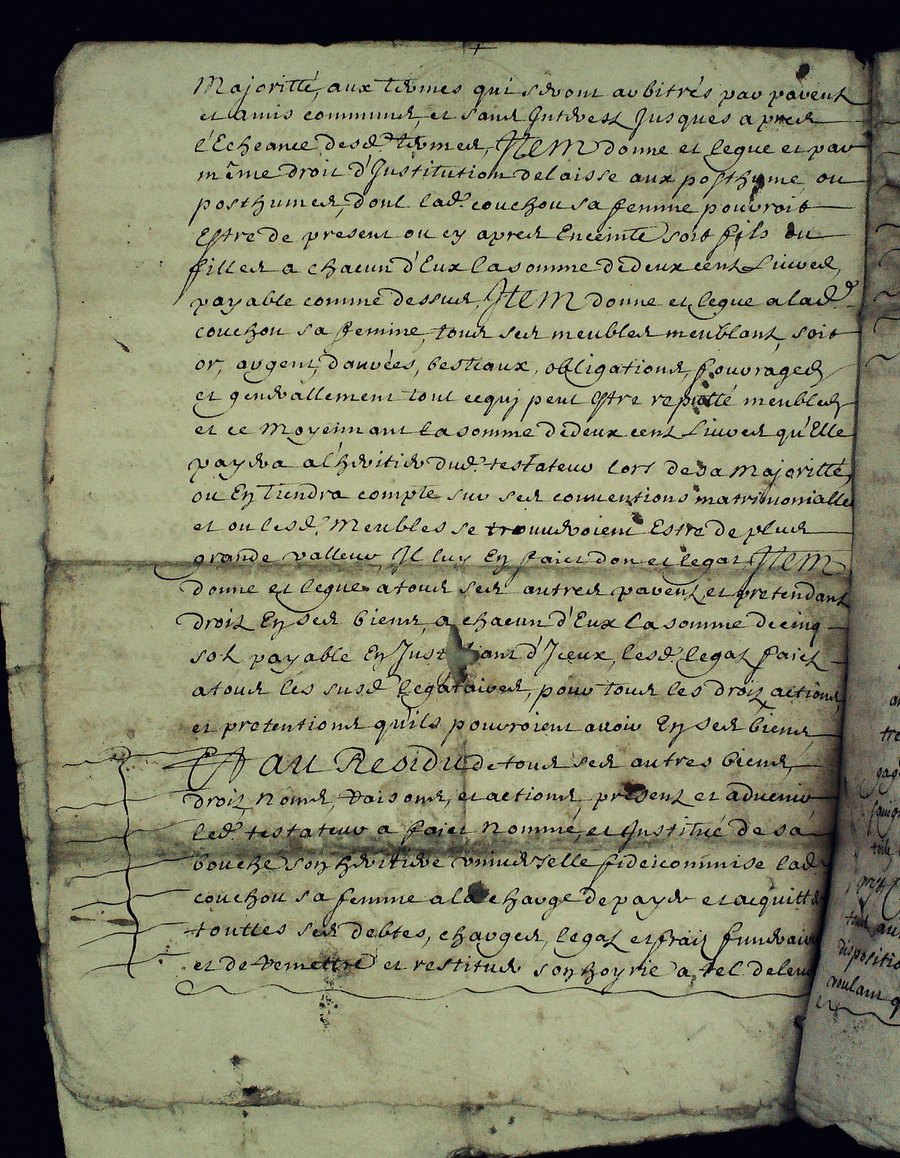 Majoritté, aux termes qui seront arbitrés par parents
et amis communs, et sans Interest Jusques apres
l'Echeance desd. termes, Item donne et legue et par
même droit d'Institution delaisse aux posthume ou
posthumes, dont lad.e couchou sa femme pouvroit
Estre de present ou cy apres Enceinte soit fils ou
filles a chacun d'Eux la somme de deux cent Livres,
payable comme dessus, Item donne et legue a lad.e
couchou sa femme, tous ses meubles meublant, soit
or, argent, danrées, bestiaux, obligations, fourrages
et generallement tout cequi peut Estre reputté meubles
et ce Moyennant la somme de deux cent Livres qu'Elle
payera a l'heritier dud. testateur lors de sa Majoritté,
ou En tiendra compte sur ses conventions matrimonialle
et ou lesd. Meubles se trouveroient Estre de plus
grande valleur, Il luy En faict don et legat Item
donne et legue a tous ses autres parents et pretendant
droit En ses biens, a chacun d'Eux la somme de cinq
sols payable En d'Iceux, lesd. legats faict
a tous les susd. legataires, pour tous les droits actions
et pretentions qu'ils pouvroient avoir En ses biens,
Et au Residu de tous ses autres biens,
droits Noms, Raisons, et actions, present et advenir
led. testateur a faict Nommé, et Institué de sa
bouche son heritiere universelle fideicommise lad.
couchou sa femme a la charge de payer et acquitter
touttes ses debtes, charges, legats et frais funeraires
et de Remettre et restituer son hoyrie a tel de leur
dispositio